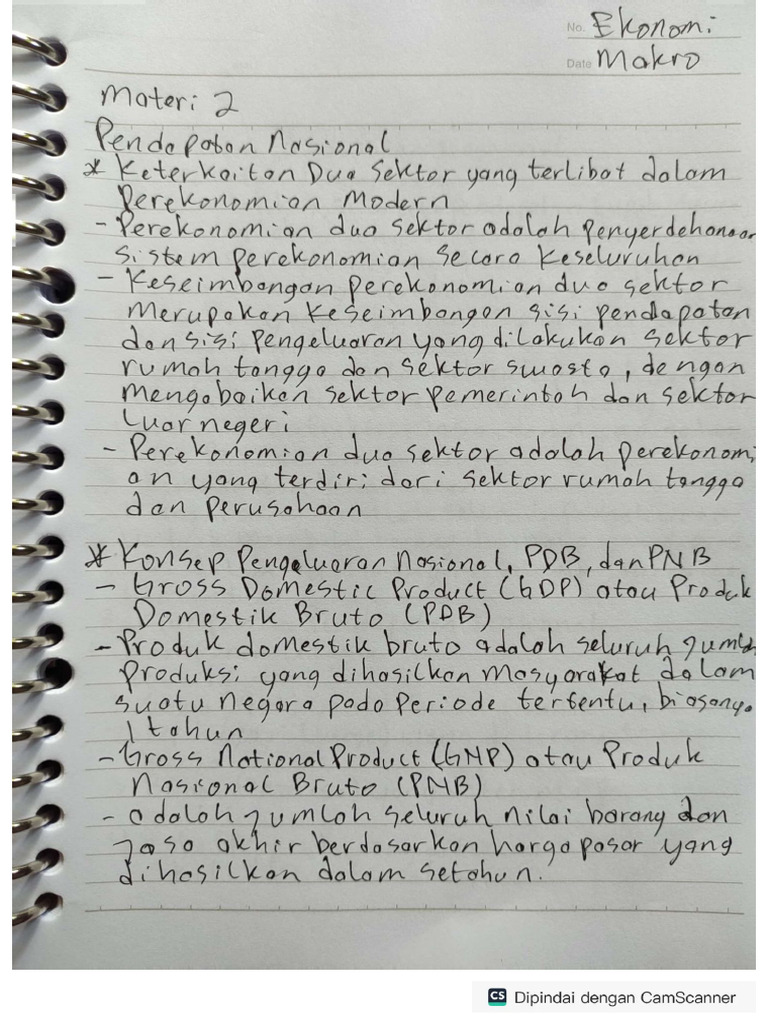 No. Ekonomi
Date Makro
Materi 2
Pendapatan Nasional
* Keterkaitan Dua Sektor yang terlibat dalam
Perekonomian Modern
- Perekonomian dua sektor adalah penyerdehanaan
sistem perekonomian secara keseluruhan
- Keseimbangan perekonomian dua sektor
merupakan keseimbangan sisi pendapatan
dan sisi pengeluaran yang dilakukan sektor
rumah tangga dan sektor swasta, dengan
mengabaikan sektor pemerintah dan sektor
luar negeri
- Perekonomian dua sektor adalah perekonomi
an yang terdiri dari sektor rumah tangga
dan perusahaan
* Konsep Pengeluaran Nasional, PDB, dan PNB
- Gross Domestic Product (GDP) atau Produk
Domestik Bruto (PDB)
- Produk domestik bruto adalah seluruh jumlah
produksi yang dihasilkan masyarakat dalam
suatu negara pada periode tertentu, biasanya
1 tahun
- Gross National Product (GNP) atau Produk
Nasional Bruto (PNB)
- adalah jumlah seluruh nilai barang dan
jasa akhir berdasarkan harga pasar yang
dihasilkan dalam setahun.
CS Dipindai dengan CamScanner